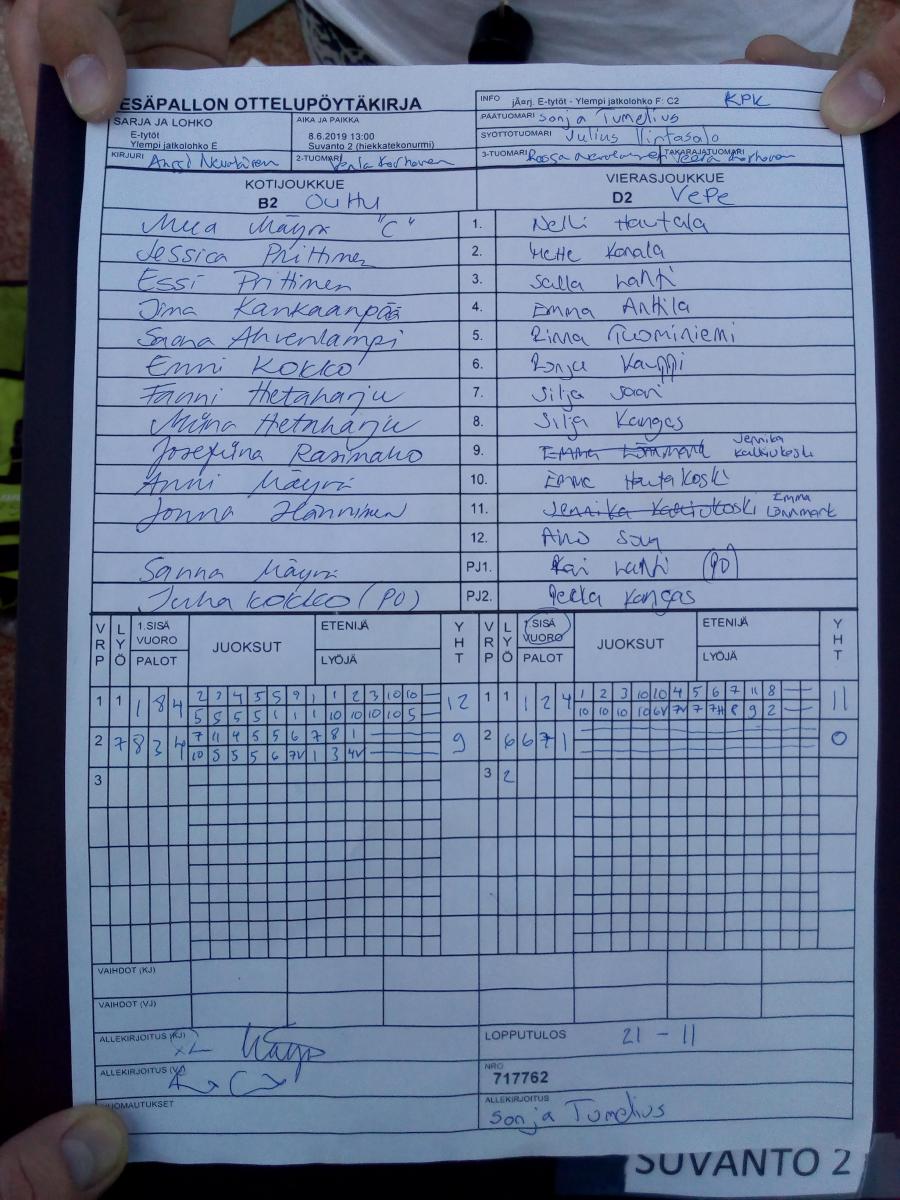 ESÄPALLON OTTELUPÖYTÄKIRJA
INFO jÄarj. E-tytöt - Ylempi jatkolohko F: C2 KPK
PÄÄTUOMARI Sonja Tumelius
SYÖTTÖTUOMARI Julius
SARJA JA LOHKO
E-tytöt
Ylempi jatkolohko E
AIKA JA PAIKKA
8.6.2019 13:00
Suvanto 2 (hiekkatekonurmi)
KIRJURI Anssi
2-TUOMARI Venla Korhonen
3-TUOMARI Roosa
TAKARAJATUOMARI Veera Korhonen
KOTIJOUKKUE
B2 OuHu
VIERASJOUKKUE
D2 VePe
Mäyrä "C" 1. Nelli Hautala
Jessica Prittinen 2. Mette Konala
Essi Prittinen 3. Salla Lahti
Jina Kankaanpää 4. Emma Anttila
Saana Ahvenlampi 5. Rinna Tuominiemi
Enni Kokko 6. Ronja Kauppi
Fanni Hietaharju 7. Silja Saari
Miina Hietaharju 8. Silja Kangas
Josefiina Rasinaho 9. Emma Lönnmark Jennika Kalliokoski
Anni Mäyrä 10. Emma Hautakoski
Jonna Hänninen 11. Jennika Kalliokoski Emma Lönnmark
12. Aino
Sanna Mäyrä PJ1. Kai Lahti (PO)
Juha Kokko (PO) PJ2. Pekka Kangas
VRP LYÖ 1.SISÄ VUORO PALOT JUOKSUT ETENIJÄ LYÖJÄ YHT
VRP LYÖ 1.SISÄ VUORO PALOT JUOKSUT ETENIJÄ LYÖJÄ YHT
1 1 1 8 4 2 3 4 5 5 9 1 1 2 3 10 10 12
5 5 5 5 1 1 1 10 10 10 10 5
1 1 1 2 4 1 2 3 10 10 4 5 6 7 11 8 11
10 10 10 10 6V 7V 7 7H 8 9 2
2 7 8 3 4 7 11 4 5 5 6 7 8 1 9
10 5 5 5 6 7V 1 3 4V
2 6 6 7 1 0
3
3 2
VAIHDOT (KJ)
VAIHDOT (VJ)
ALLEKIRJOITUS (KJ) Mäyrä
LOPPUTULOS 21 - 11
ALLEKIRJOITUS (VJ)
NRO
717762
HUOMAUTUKSET
ALLEKIRJOITUS
Sonja Tumelius
SUVANTO 2